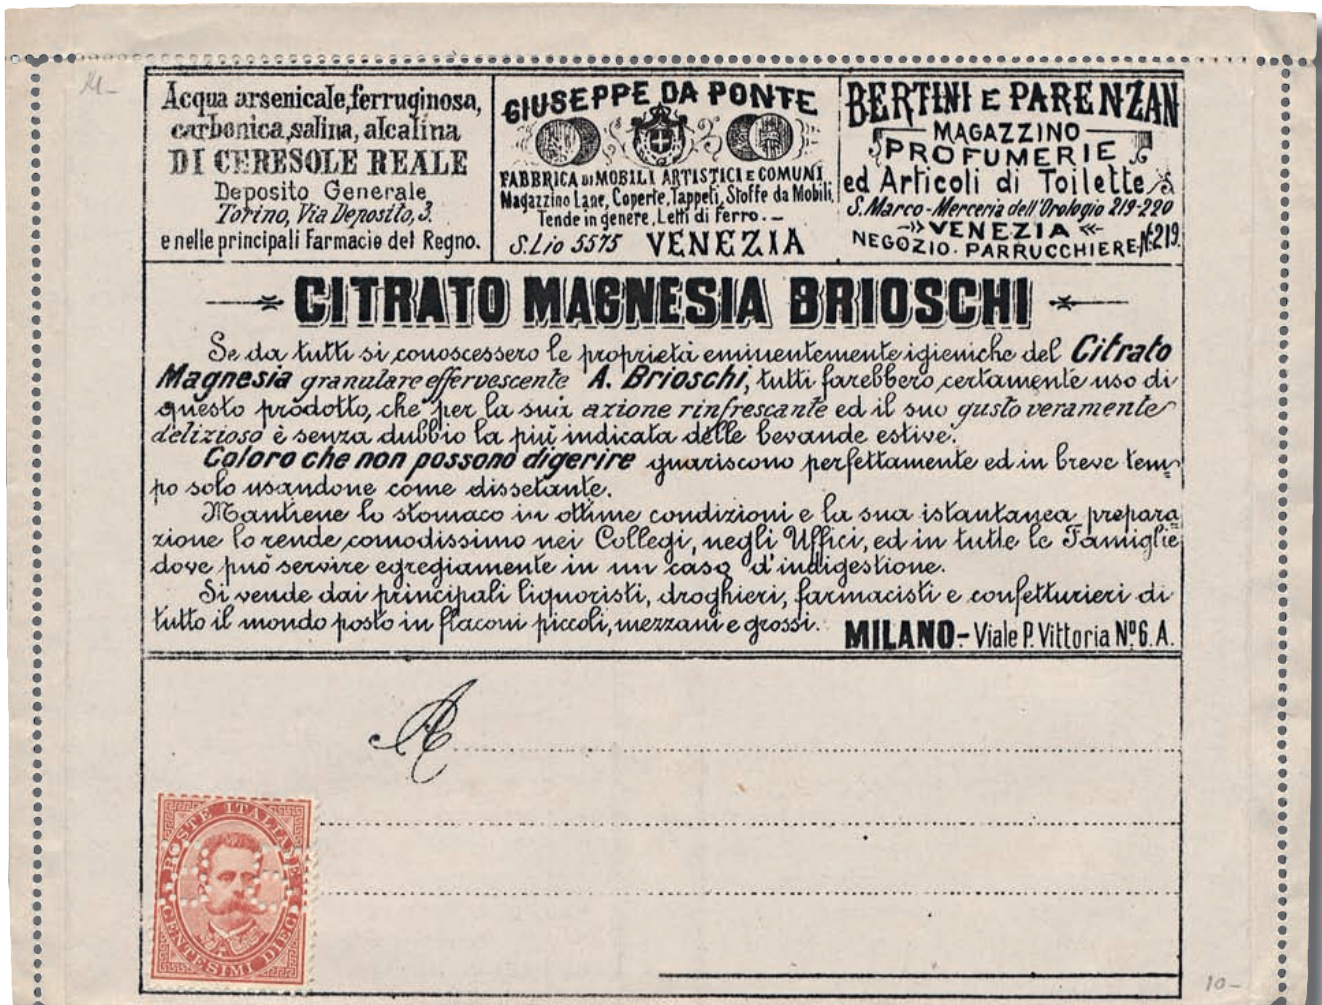 Acqua arsenicale, ferruginosa,
carbonica, salina, alcalina
DI CERESOLE REALE
Deposito Generale,
Torino, Via Deposito, 3.
e nelle principali Farmacie del Regno.
GIUSEPPE DA PONTE
FABBRICA DI MOBILI ARTISTICI E COMUNI
Magazzino Lane, Coperte, Tappeti, Stoffe da Mobili,
Tende in genere, Letti di Ferro. —
S. Lio 5575 VENEZIA
BERTINI E PARENZAN
MAGAZZINO
PROFUMERIE
ed Articoli di Toilette
S. Marco - Merceria dell'Orologio 219-220
VENEZIA
NEGOZIO. PARRUCCHIERE, No 219.
CITRATO MAGNESIA BRIOSCHI
Se da tutti si conoscessero le proprietà eminentemente igieniche del Citrato
Magnesia granulare effervescente A. Brioschi, tutti farebbero certamente uso di
questo prodotto, che per la sua azione rinfrescante ed il suo gusto veramente
delizioso è senza dubbio la più indicata delle bevande estive.
Coloro che non possono digerire guariscono perfettamente ed in breve tem-
po solo usandone come dissetante.
Mantiene lo stomaco in ottime condizioni e la sua istantanea prepara=
zione lo rende comodissimo nei Collegi, negli Uffici, ed in tutte le Famiglie
dove può servire egregiamente in un caso d'indigestione.
Si vende dai principali liquoristi, droghieri, farmacisti e confetturieri di
tutto il mondo posto in flaconi piccoli, mezzani e grossi. MILANO - Viale P. Vittoria No 6. A.
A
POSTE ITALIANE
CENTESIMI DIECI
10-